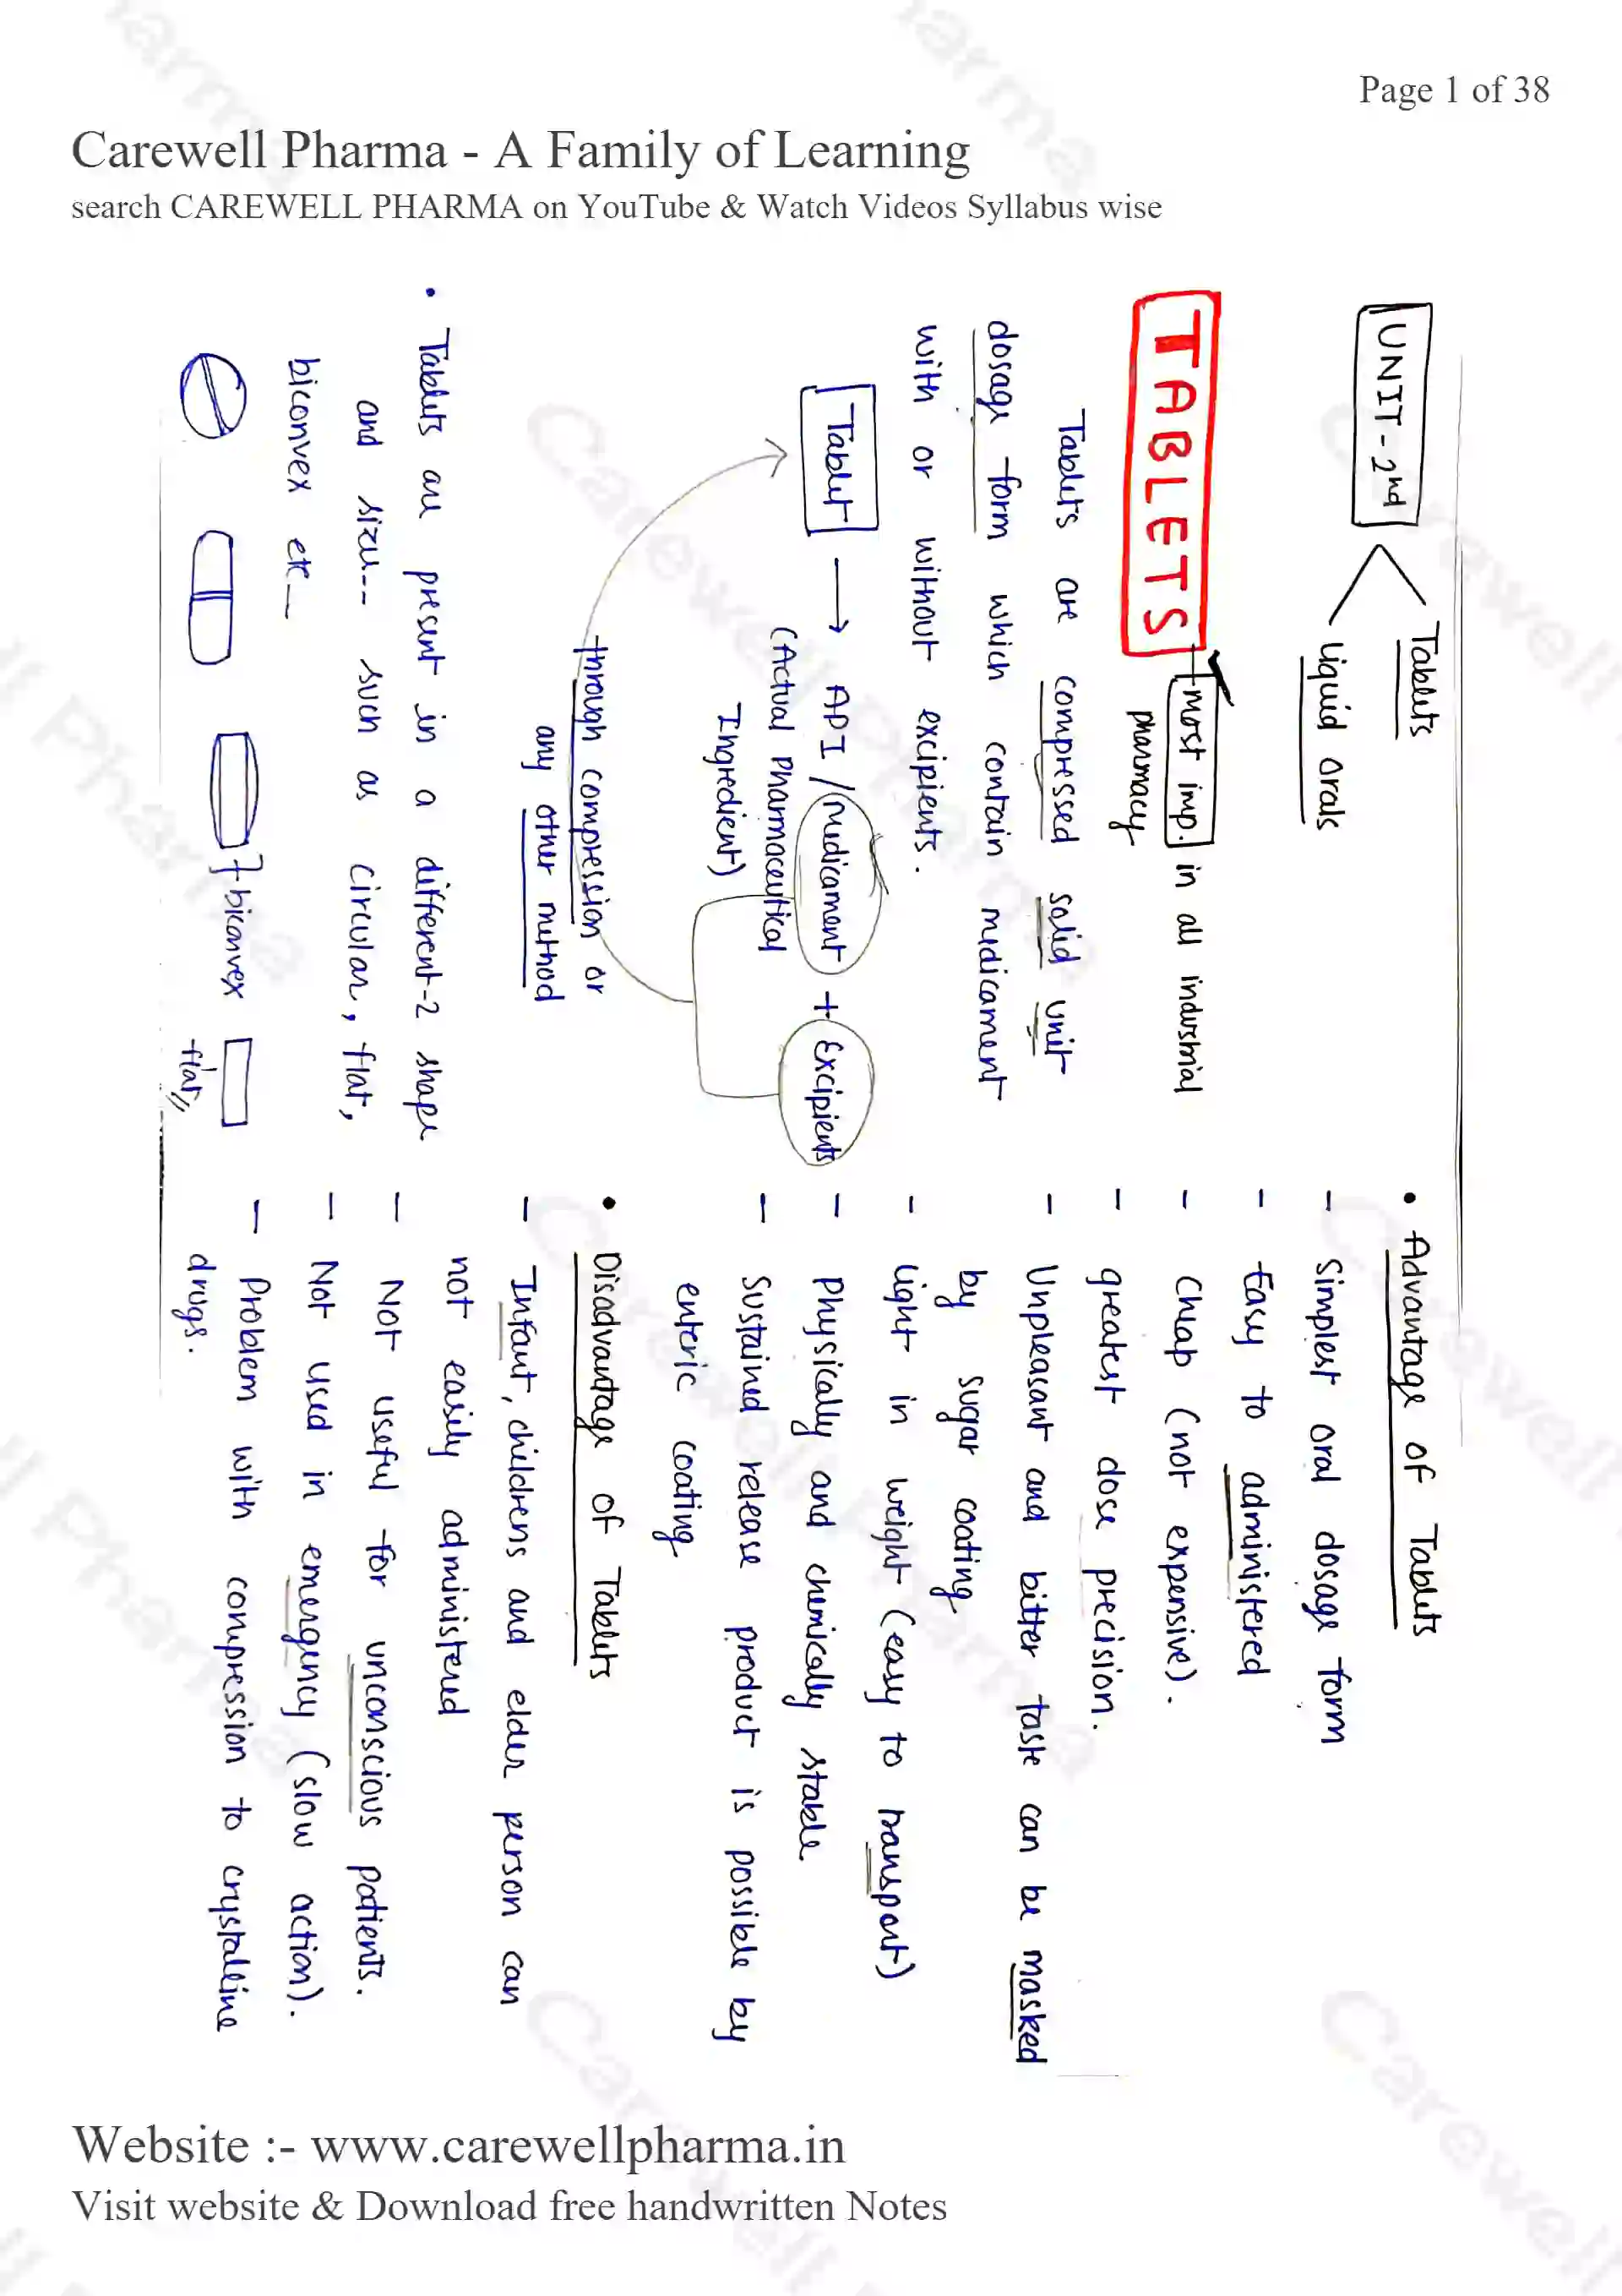 Page 1 of 38
Carewell Pharma - A Family of Learning
search CAREWELL PHARMA on YouTube & Watch Videos Syllabus wise
UNIT-2nd
Tablets
Liquid orals
TABLETS
most imp. in all industrial
pharmacy
Tablets are compressed solid unit
dosage form which contain medicament
with or without excipients.
Tablet → API / Medicament + Excipients
(Actual Pharmaceutical
Ingredient)
through compression or
any other method
• Tablets are present in a different-2 shape
and size... such as circular, flat,
biconvex etc—
} biconvex
flat
• Advantage of Tablets
– Simplest oral dosage form
– Easy to administered
– Cheap (not expensive).
– greatest dose precision.
– Unpleasant and bitter taste can be masked
by sugar coating
– Light in weight (easy to transport)
– Physically and chemically stable
– Sustained release product is possible by
enteric coating
• Disadvantage of Tablets
– Infant, childrens and elder person can
not easily administered
– Not useful for unconscious patients.
– Not used in emergency (slow action).
– Problem with compression to crystalline
drugs.
Website :- www.carewellpharma.in
Visit website & Download free handwritten Notes
Carewell Pharma